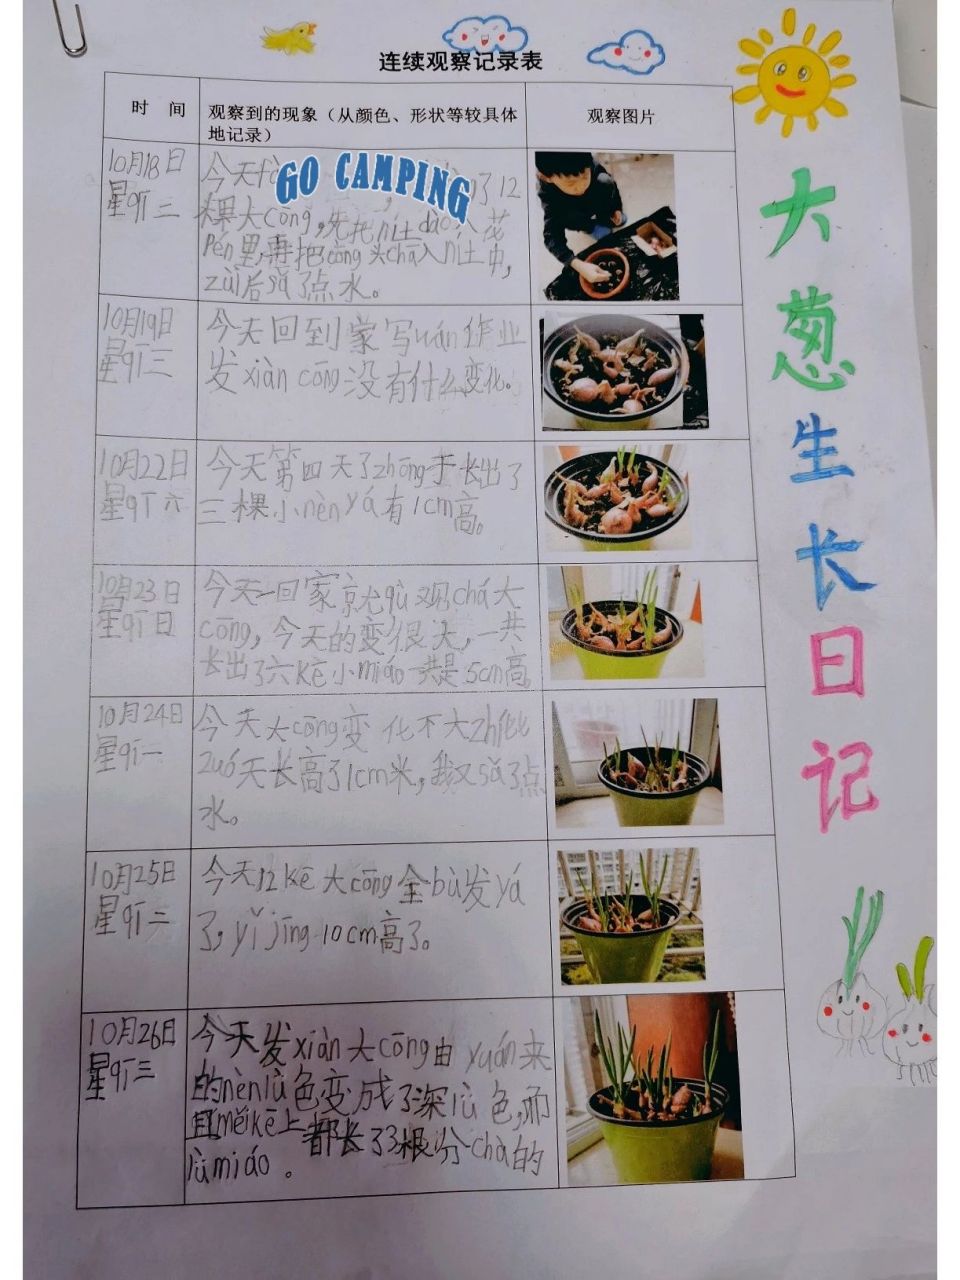 连续观察记录表
时 间
观察到的现象（从颜色、形状等较具体
地记录）
观察图片
10月18日
星qī二
今天
GO CAMPING
了12
棵大cōng,先把ní土dào入花
Pén里,再把cōng头chā入ní土中,
zuì后sǎ了点水。
10月19日
星qī三
今天回到家写uán作业
发xiàn cōng没有什么变化。
10月22日
星qī六
今天第四天了zhōng于长出了
三棵小nènyá有1cm高。
10月23日
星qī日
今天一回家就qù观chá大
cōng,今天的变很大,一共
长出了六kē小miáo一共是5cm高。
10月24日
星qī一
今天大cōng变化不大zhǐ比
zuó天长高了1cm米,我又sǎ了点
水。
10月25日
星qī二
今天12kē大cōng全bù发yá
了,yǐjīng10cm高了。
10月26日
星qī三
今天发xiàn大cōng由yuán来
的nènlǜ色变成了深lǜ色,而
且měikē上都长了3根分chà的
lǜmiáo。
大葱生长日记